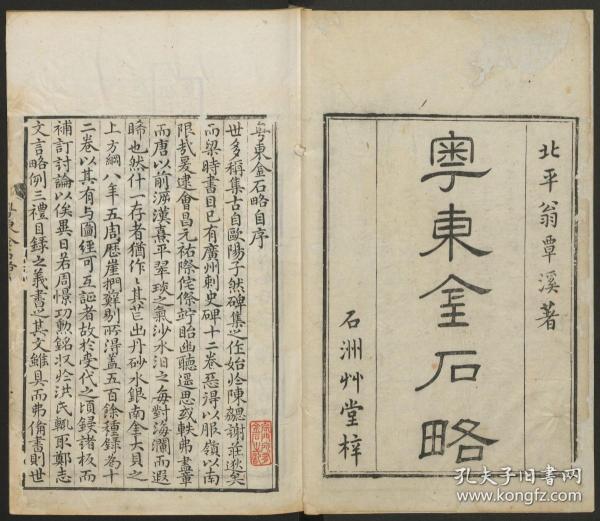 北平翁覃溪著
粤東金石略
石洲艸堂梓
粤東金石略自序
世多稱集古自歐陽子然碑集之作始於陳勰謝莊邈矣
而梁時書目已有廣州刺史碑十二卷惡得以服嶺以南
限哉爰逮會昌元祐際佗傺竚眙幽聽遥思或軼弗盡章
而唐以前溯漢熹平翠琰之氣沙水汨之每對海瀾而遐
睎也然什一存者猶作作其芒出丹砂水銀南金大貝之
上方綱八年五周歷崖捫蘚剔所得蓋五百餘種録為十
二卷以其有與圖經可互証者故於受代之頃録諸板而
補訂討論以俟異日若周憬功勲銘收於洪氏輒取鄭志
文言略例三禮目録之義書之其文雖具而弗備書則世
孔夫子旧书网
www.kongfz.com